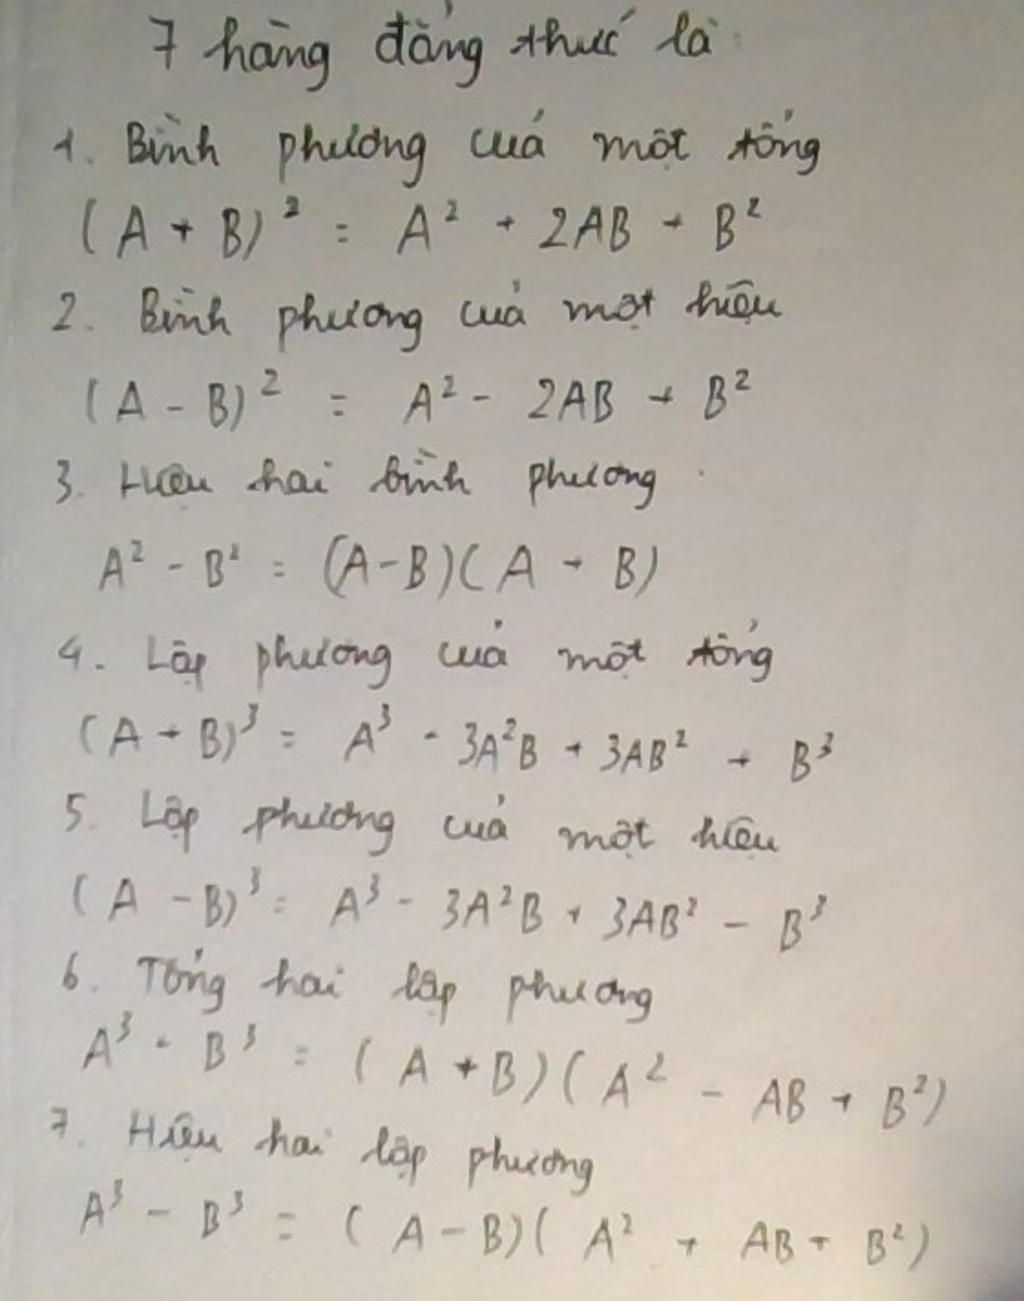 7 hằng đẳng thức là:
1. Bình phương của một tổng
(A + B)² = A² + 2AB + B²
2. Bình phương của một hiệu
(A - B)² = A² - 2AB + B²
3. Hiệu hai bình phương
A² - B² = (A-B)(A + B)
4. Lập phương của một tổng
(A + B)³ = A³ + 3A²B + 3AB² + B³
5. Lập phương của một hiệu
(A - B)³ = A³ - 3A²B + 3AB² - B³
6. Tổng hai lập phương
A³ + B³ = (A + B)(A² - AB + B²)
7. Hiệu hai lập phương
A³ - B³ = (A - B)(A² + AB + B²)